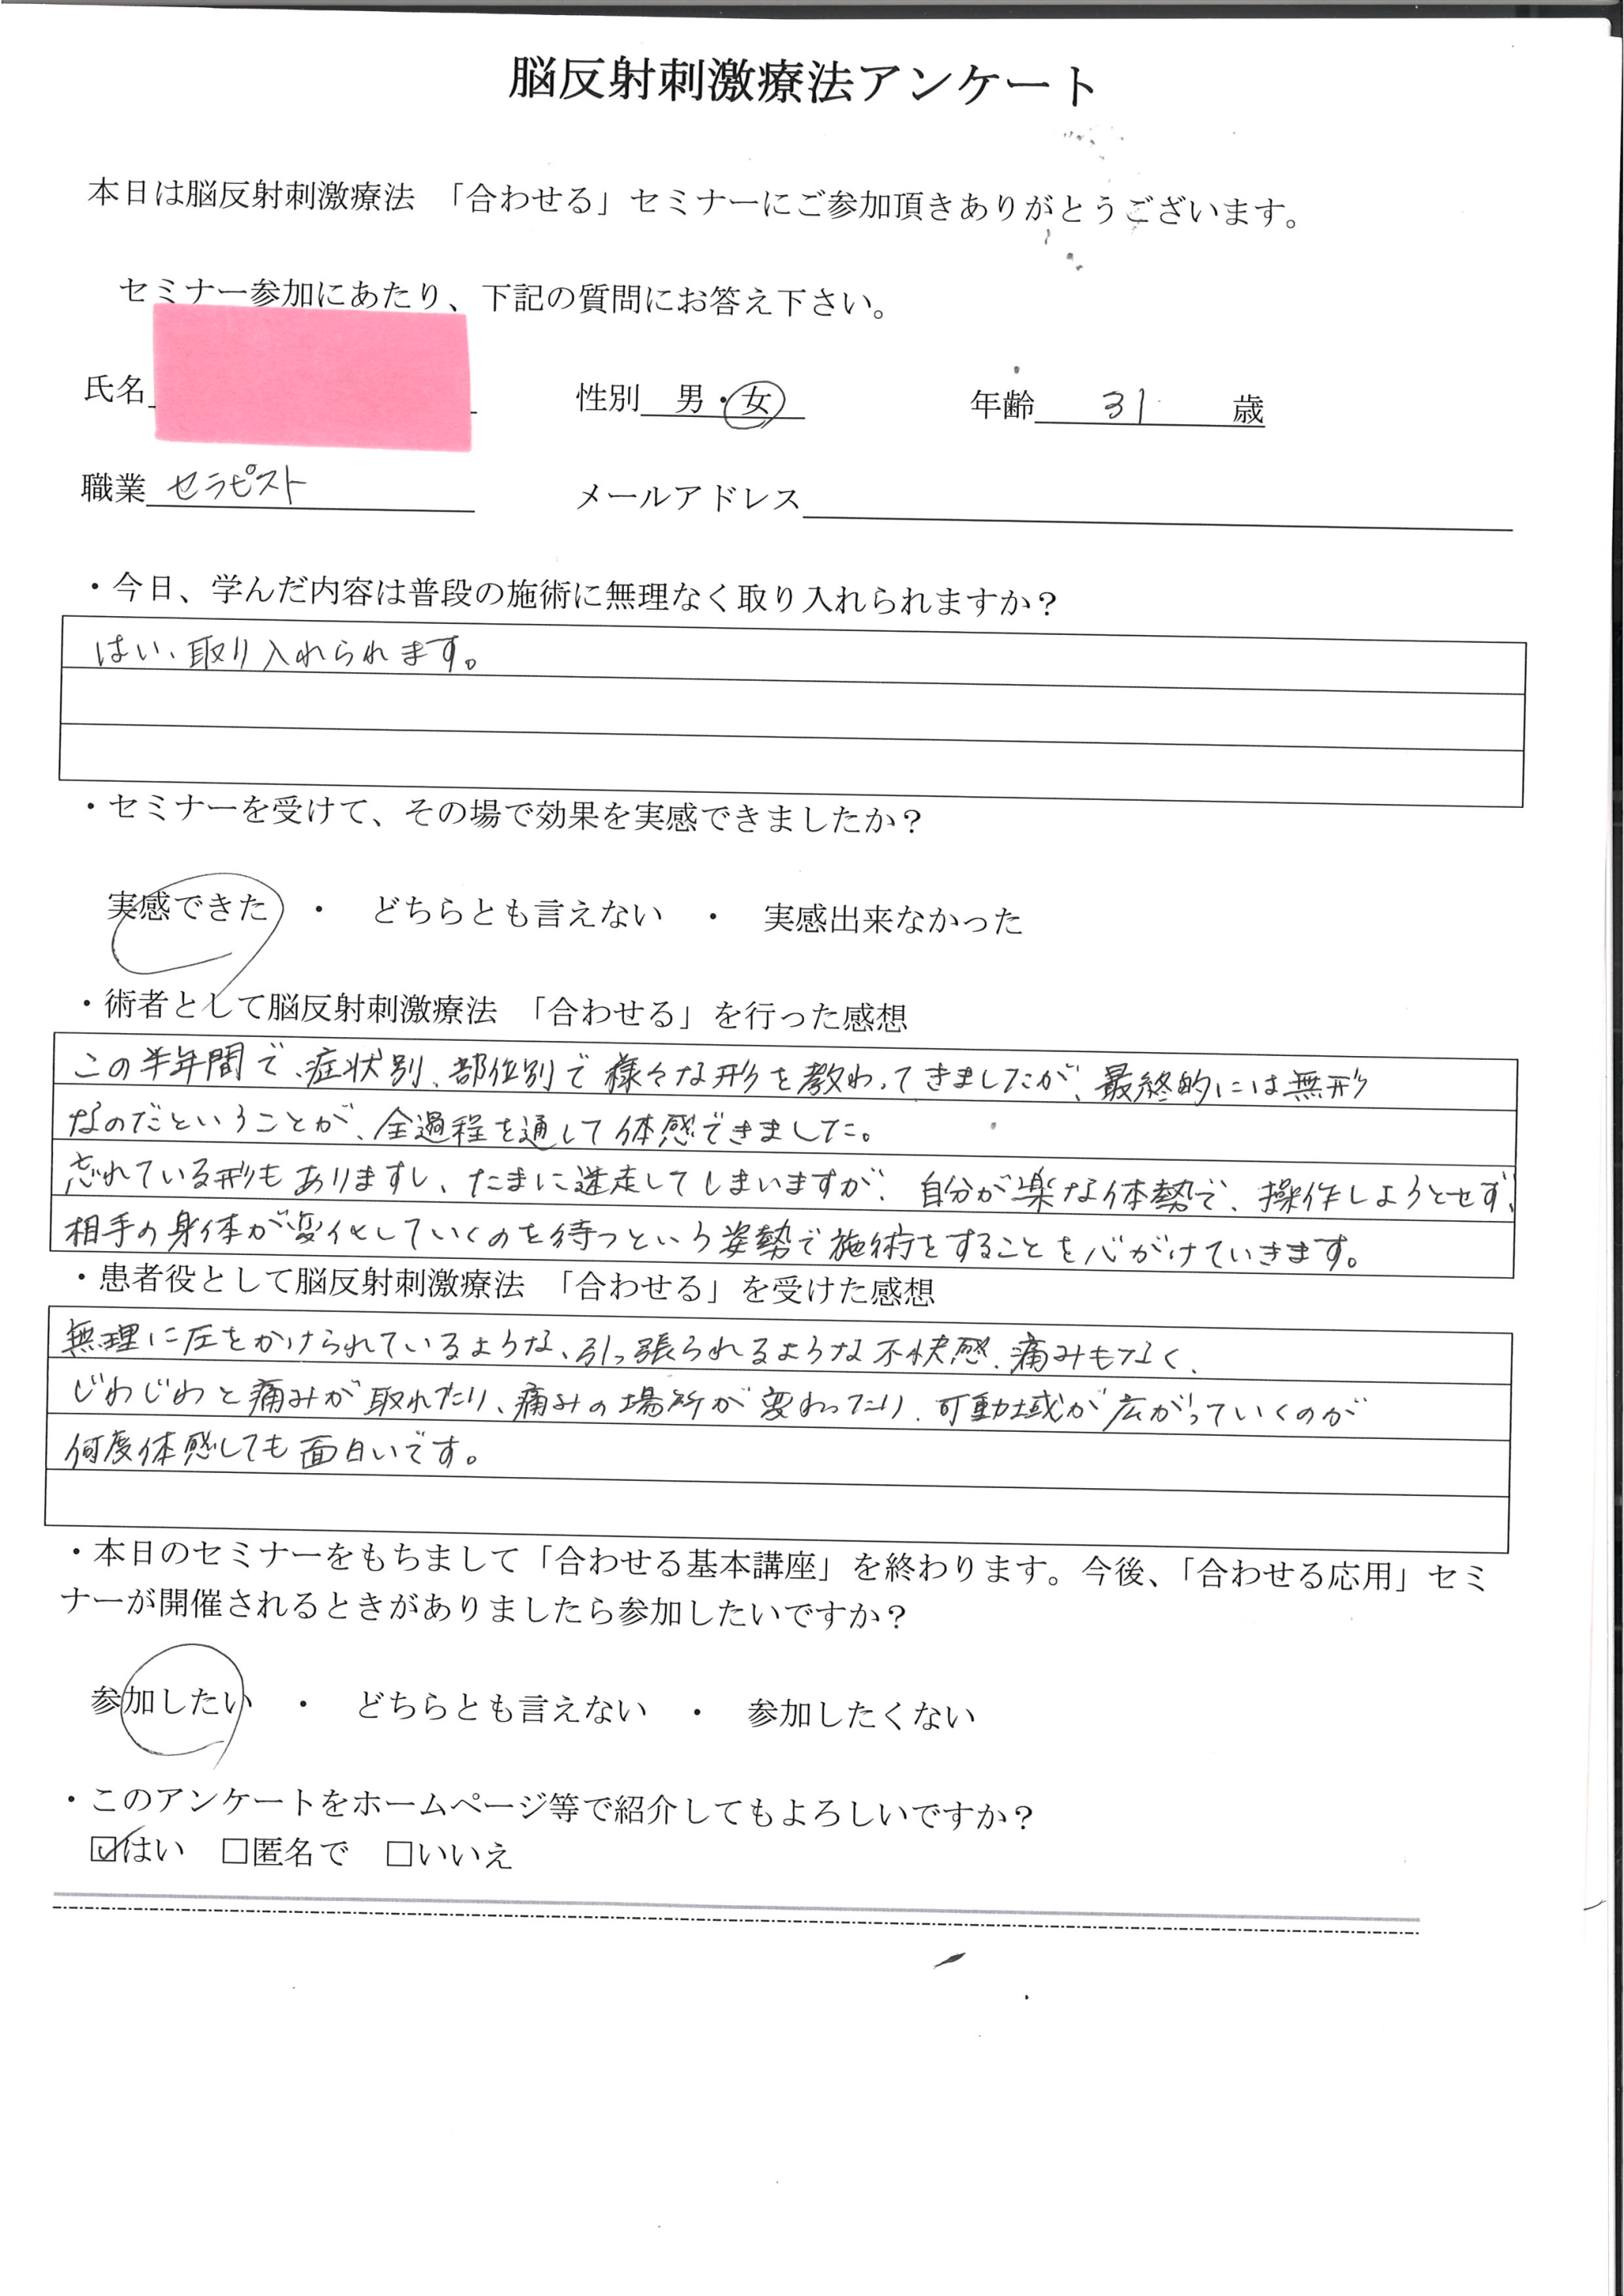 脳反射刺激療法アンケート
本日は脳反射刺激療法 「合わせる」セミナーにご参加頂きありがとうございます。
セミナー参加にあたり、下記の質問にお答え下さい。
氏名 性別 男・女 年齢 31 歳
職業 セラピスト メールアドレス
・今日、学んだ内容は普段の施術に無理なく取り入れられますか?
はい、取り入れられます。
・セミナーを受けて、その場で効果を実感できましたか?
実感できた ・ どちらとも言えない ・ 実感出来なかった
・術者として脳反射刺激療法 「合わせる」を行った感想
この半年間で、症状別、部位別で様々な形を教わってきましたが、最終的には無形
なのだということが、全過程を通して体感できました。
忘れている形もありますし、たまに迷走してしまいますが、自分が楽な体勢で、操作しようとせず、
相手の身体が変化していくのを待つという姿勢で施術をすることを心がけていきます。
・患者役として脳反射刺激療法 「合わせる」を受けた感想
無理に圧をかけられているような、引っ張られるような不快感、痛みもなく、
じわじわと痛みが取れたり、痛みの場所が変わったり、可動域が広がっていくのが
何度体感しても面白いです。
・本日のセミナーをもちまして「合わせる基本講座」を終わります。今後、「合わせる応用」セミ
ナーが開催されるときがありましたら参加したいですか?
参加したい ・ どちらとも言えない ・ 参加したくない
・このアンケートをホームページ等で紹介してもよろしいですか?
☑はい □匿名で □いいえ